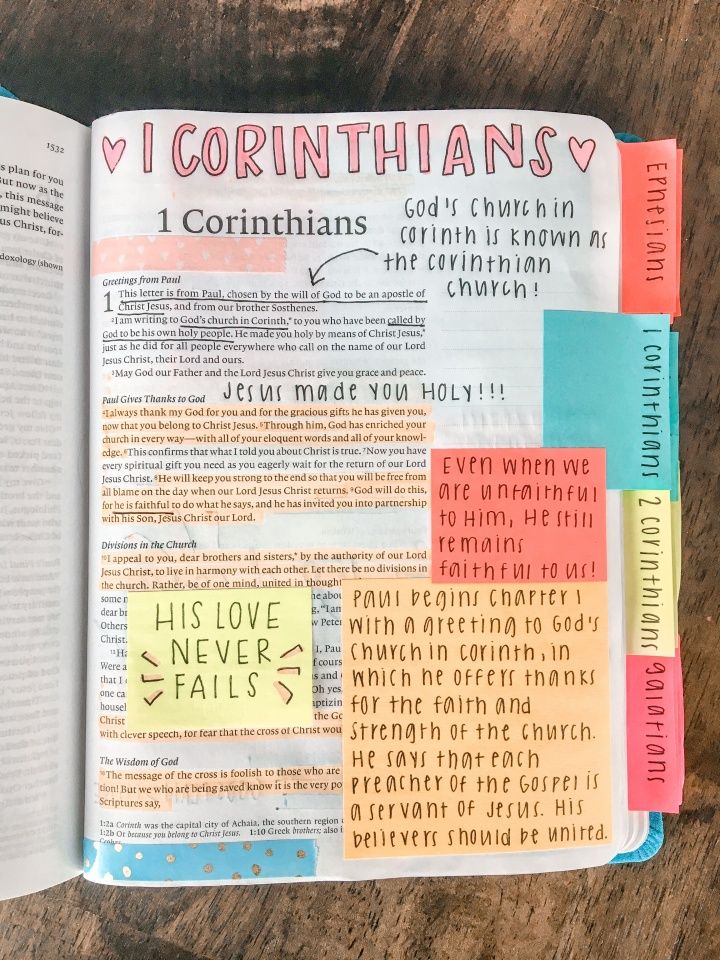 1532
s plan for you
But now as the
, this message
might believe
us Christ, for-
doxology (shown
I CORINTHIANS
1 Corinthians
God's church in
corinth is known as
the corinthian
church!
Greetings from Paul
1 This letter is from Paul, chosen by the will of God to be an apostle of
Christ Jesus, and from our brother Sosthenes.
2I am writing to God's church in Corinth,* to you who have been called by
God to be his own holy people. He made you holy by means of Christ Jesus,*
just as he did for all people everywhere who call on the name of our Lord
Jesus Christ, their Lord and ours.
3May God our Father and the Lord Jesus Christ give you grace and peace.
Jesus made you HOLY!!!
Paul Gives Thanks to God
4I always thank my God for you and for the gracious gifts he has given you,
now that you belong to Christ Jesus. 5Through him, God has enriched your
church in every way—with all of your eloquent words and all of your knowl-
edge. 6This confirms that what I told you about Christ is true. 7Now you have
every spiritual gift you need as you eagerly wait for the return of our Lord
Jesus Christ. 8He will keep you strong to the end so that you will be free from
all blame on the day when our Lord Jesus Christ returns. 9God will do this,
for he is faithful to do what he says, and he has invited you into partnership
with his Son, Jesus Christ our Lord.
Even when we
are unfaithful
to Him, He still
remains
faithful to us!
Divisions in the Church
10I appeal to you, dear brothers and sisters,* by the authority of our Lord
Jesus Christ, to live in harmony with each other. Let there be no divisions in
the church. Rather, be of one mind, united in thought
some m
dear br
Others
Christ.
Were a
that I
one ca
househ
Christ
with clever speech, for fear that the cross of Christ wou
HIS LOVE
NEVER
FAILS
Paul begins chapter 1
with a greeting to God's
church in corinth, in
which he offers thanks
for the faith and
strength of the church.
He says that each
preacher of the Gospel is
a servant of Jesus. His
believers should be united.
The Wisdom of God
18The message of the cross is foolish to those who are
tion! But we who are being saved know it is the very po
Scriptures say,
1:2a Corinth was the capital city of Achaia, the southern region
1:2b Or because you belong to Christ Jesus. 1:10 Greek brothers; also i
Ephesians
1 corinthians
2 corinthians
galatians